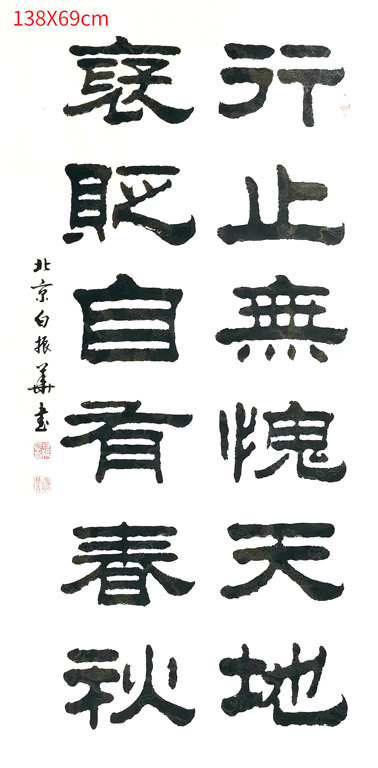 138X69cm
行止無愧天地
褒貶自有春秋
北京白振華書